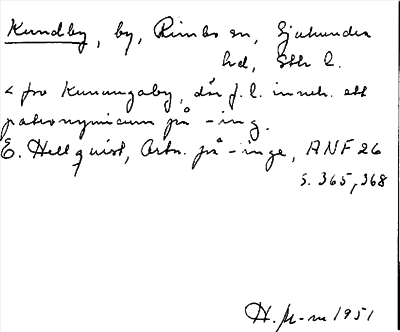 Kundby, by, Rimbo sn, Sjuhundra
hd, Sthlm l.
< fro Kunungaby, där f.l. inneh. ett
patronymicum på -ing.
E. Hellquist, Ortn. på -inge, ANF 26
s. 365, 368
H. M-m 1951